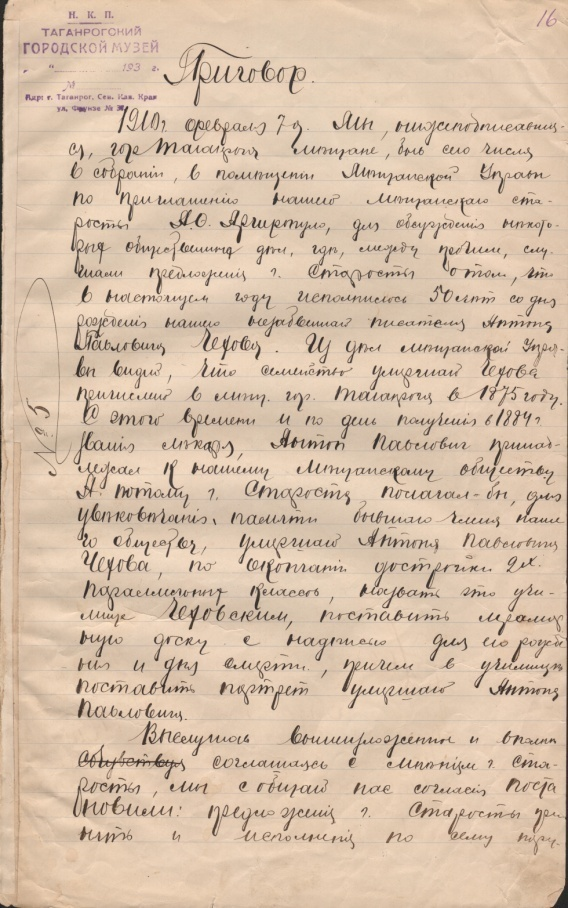 Н. К. П.
ТАГАНРОГСКИЙ
ГОРОДСКОЙ МУЗЕЙ
" " 193 г.
№
Адр: г. Таганрог, Сев. Кав. Края
ул. Фрунзе №
16
Приговор.
1910 г февраля 7 д. Мы, нижеподписавшие-
ся, гор Таганрога мещане, быв сего числа
в собрании, в помещении Мещанской Управы
по приглашению нашего мещанскаго ста-
росты А.О. Аргиропуло, для обсуждения некото-
рых общественных дел, где, между прочим, слу-
шали предложения г. Старосты о том, что
в настоящем году исполнилось 50 лет со дня
рождения нашего незабвеннаго писателя Антона
Павловича Чехова. Из дел мещанской Упра-
вы видно, что семейство умершаго Чехова
причислено в мещ. гор. Таганрога в 1875 году.
С этого времени и по день получения в 1884 г
звания лекаря, Антон Павлович принад-
лежал к нашему мещанскому обществу
А потому г. Староста полагал-бы, для
увековечения памяти бывшаго члена наше
го общества, умершаго Антона Павловича
Чехова, по окончании достройки 2х.
параллельных классов, назвать это учи-
лище Чеховским, поставить мрамор
ную доску с надписью дня его рожде
ния и дня смерти, причем в училище
поставить портрет умершаго Антона
Павловича.
№ 5
Выслушав вышеизложенное и вполне
сочувствуя соглашаясь с мнением г. Ста-
росты, мы с общаго нас согласия поста
новили: предложения г. Старосты при
нять и исполнения по сему